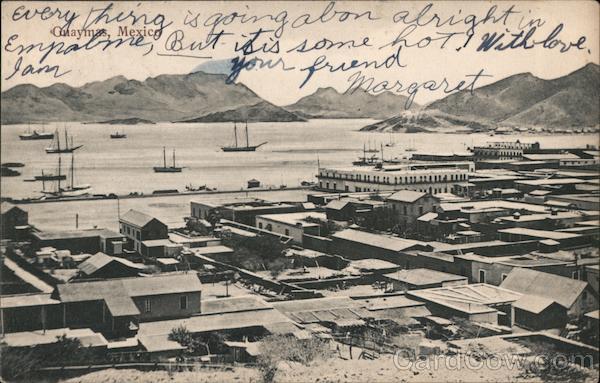 every thing is going abon alright in
Guaymas, Mexico
Empalme, But it is some hot! With love.
I am
your friend
Margaret
CardCow.com